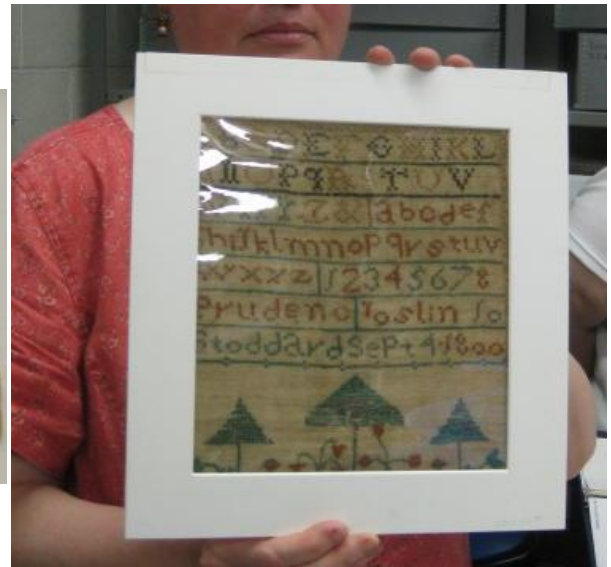 E F G H I K L
P Q R S T U V
Y Z & a b c d e f
g h i j k l m n o p q r s t u v
w x y z 1 2 3 4 5 6 7 8
Prudenc Joslin so
Stoddard Sept 4 1800